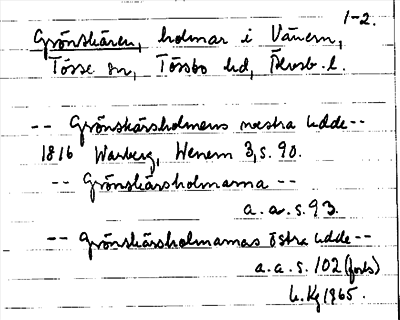 1-2.
Grönskären, holmar i Vänern,
Tösse sn, Tössbo hd, Älvsb. l.
-- Grönskärsholmens westra udde --
1816 Warberg, Wenern 3, s. 90.
-- Grönskärsholmarna --
a. a. s. 93.
-- Grönskärsholmarnas östra udde --
a. a. s. 102 (forts)
1965.